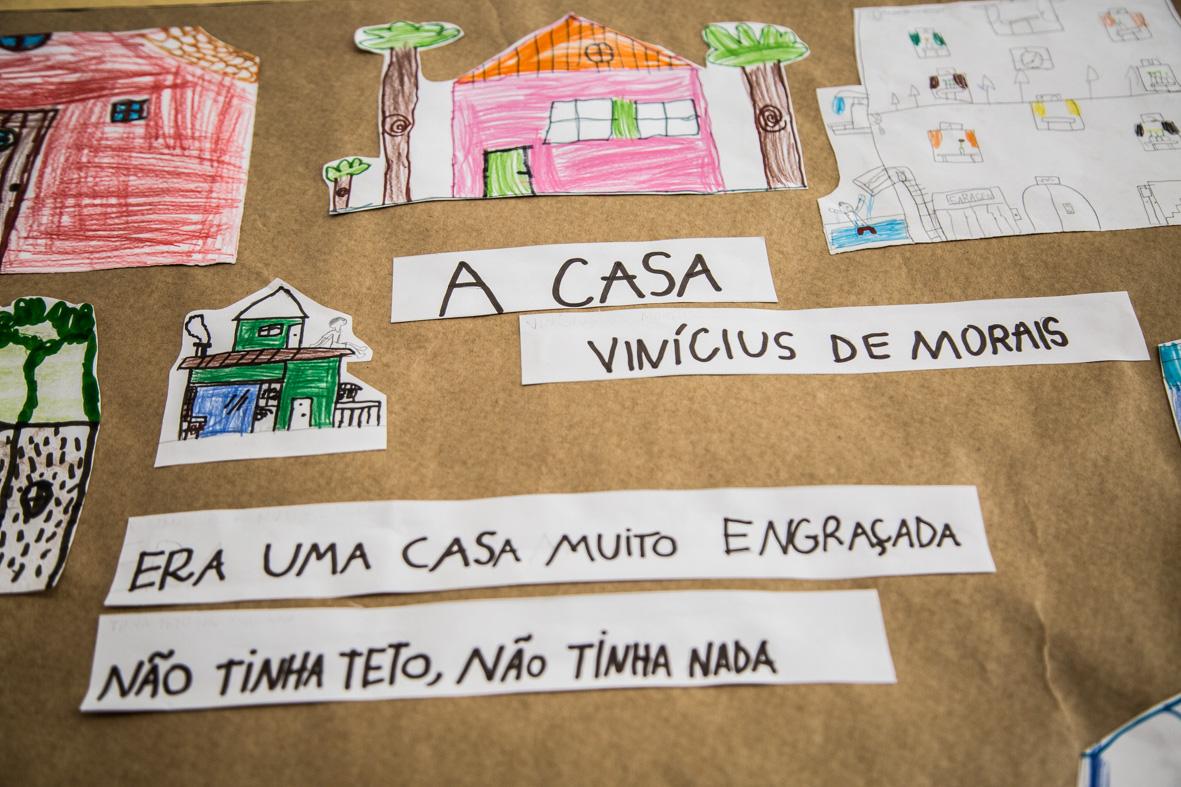 GARAGEM
A CASA
VINÍCIUS DE MORAIS
ERA UMA CASA MUITO ENGRAÇADA
NÃO TINHA TETO, NÃO TINHA NADA